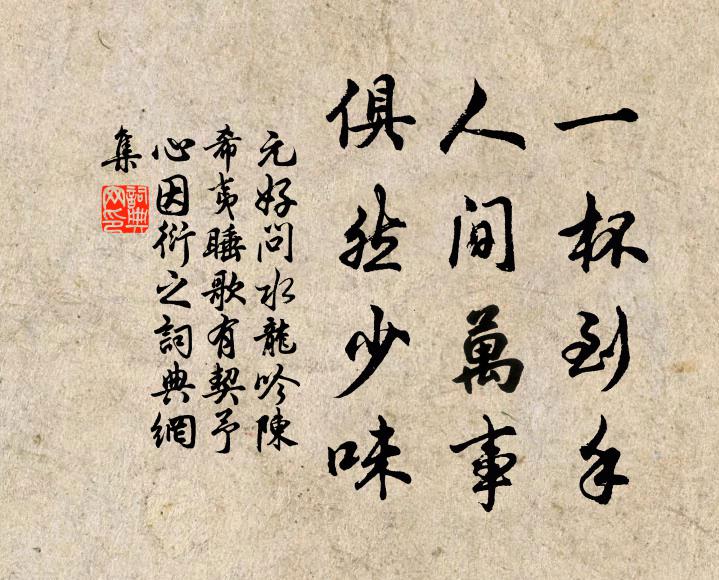 一杯到手
人間萬事
俱然少味
元好問水龍吟陳
希夷睡歌有契予
心因衍之詞典網
集
詞典
网印